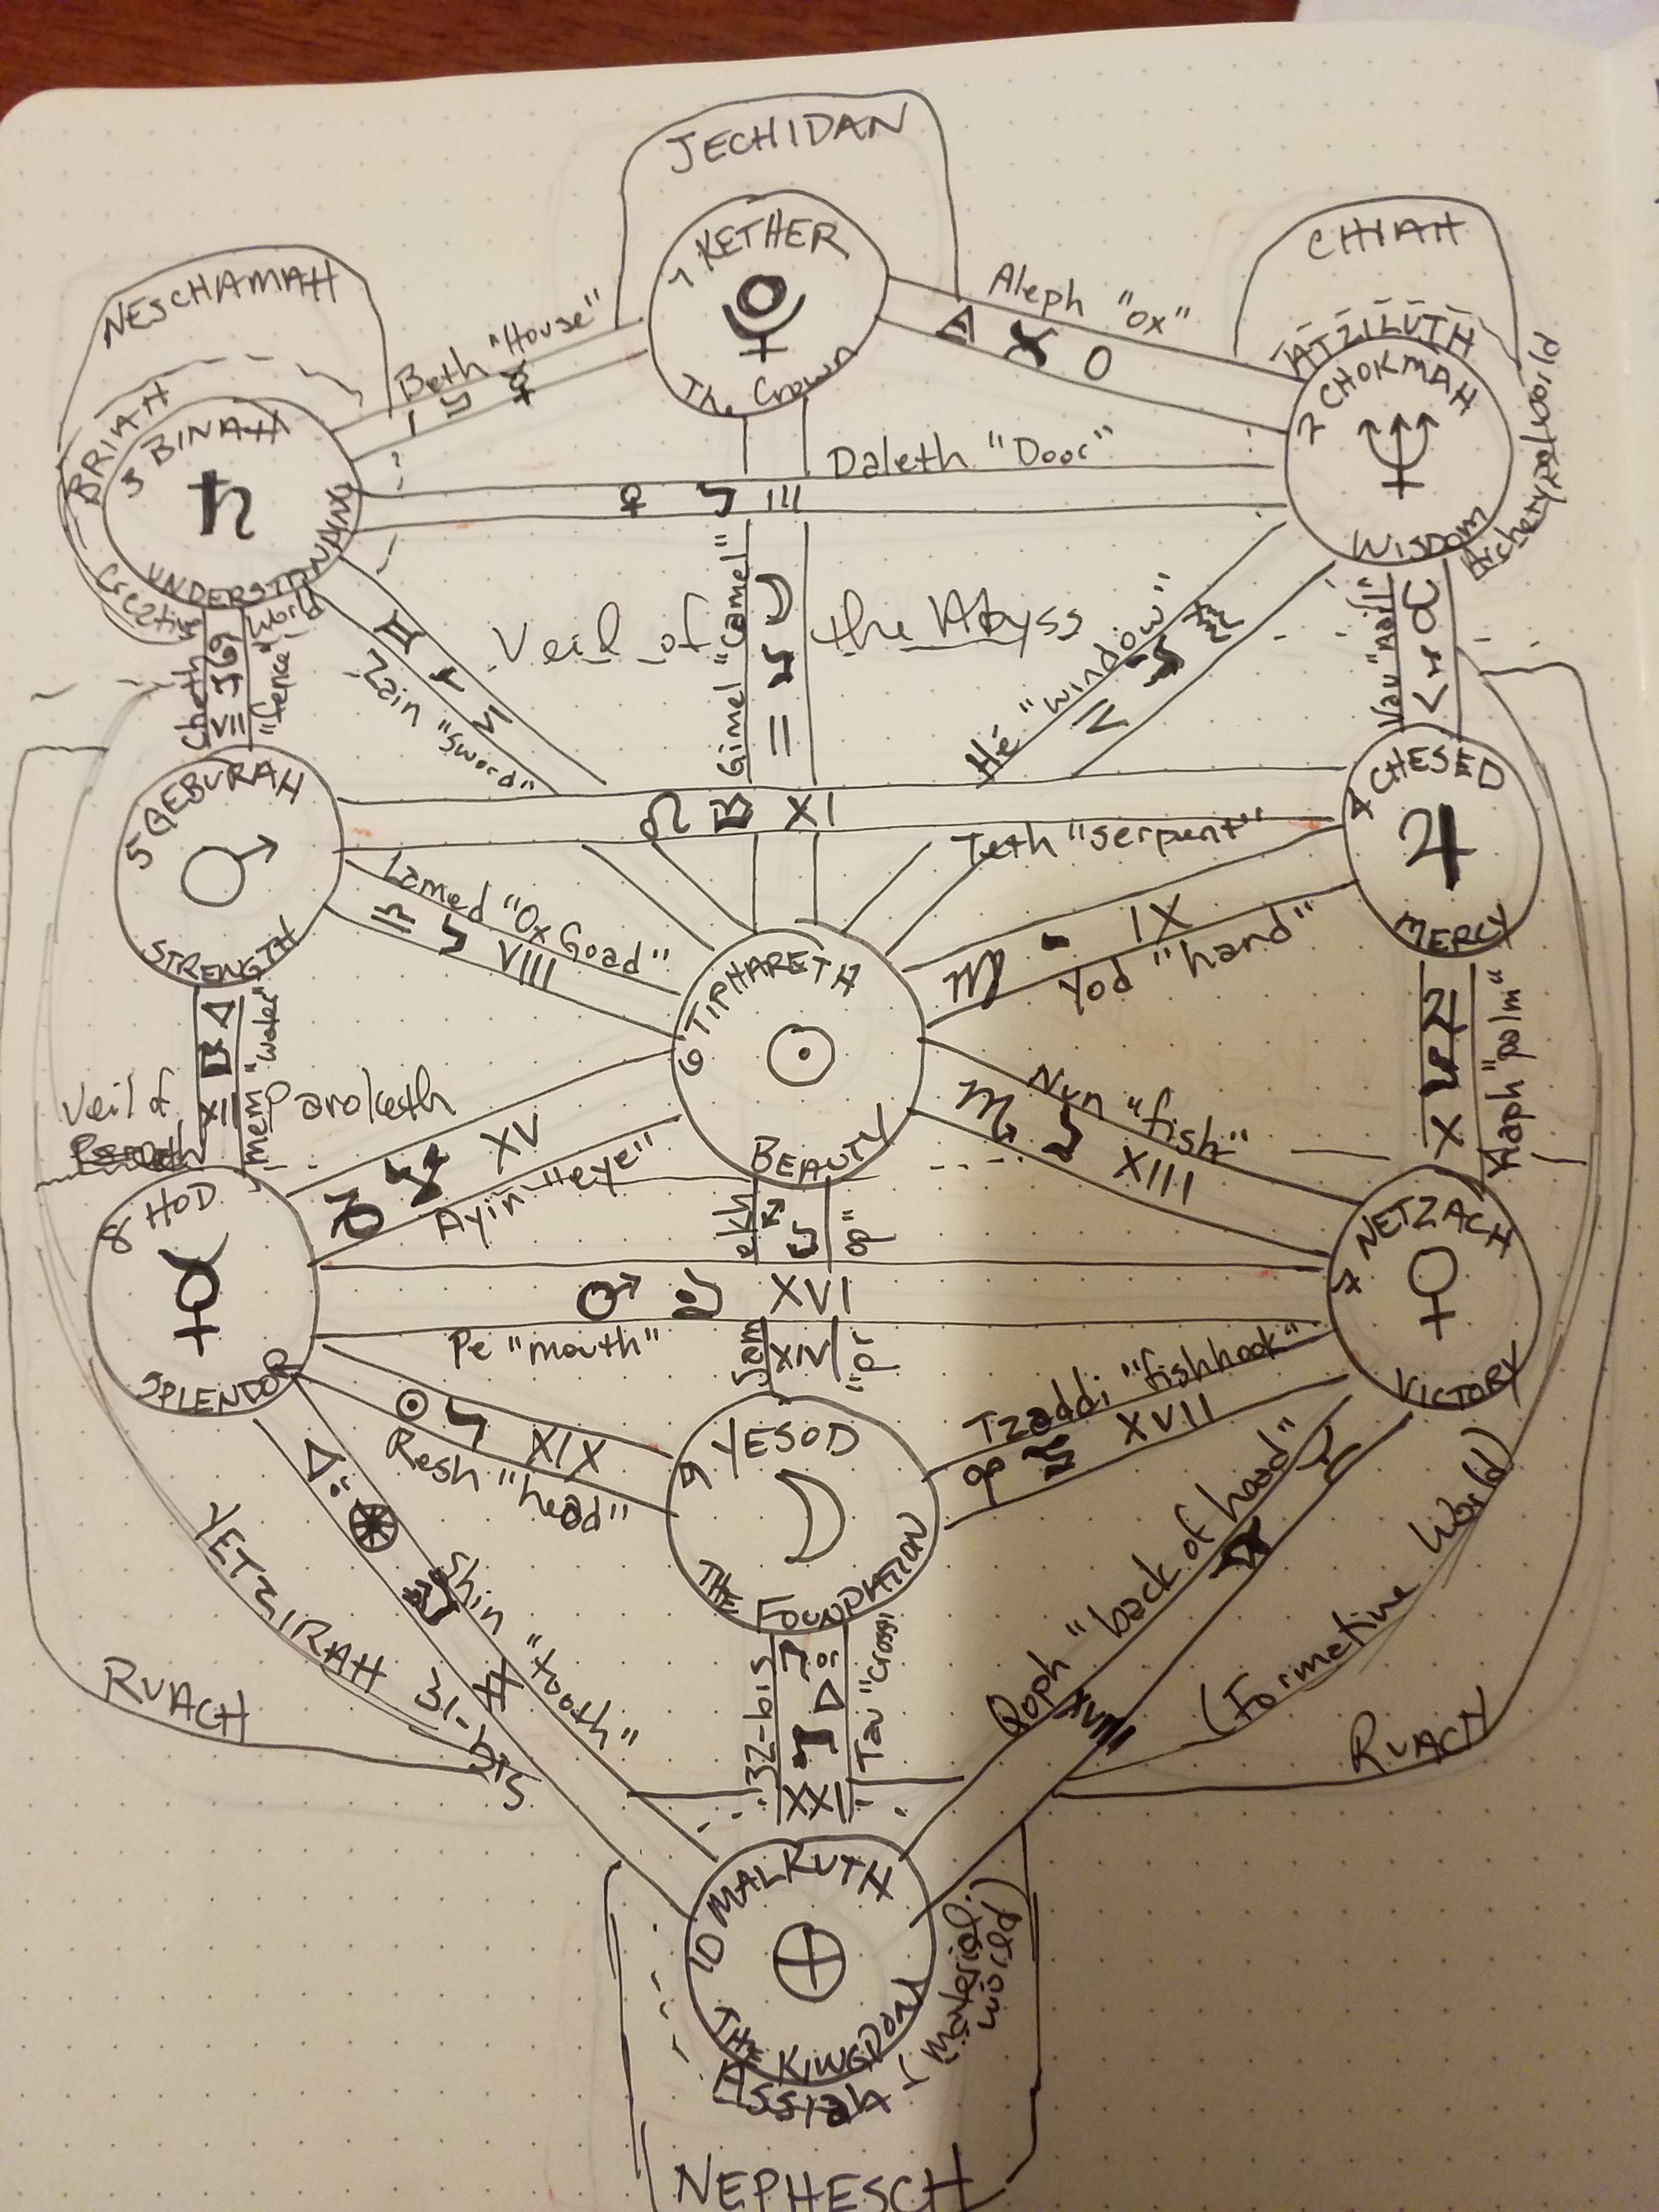 JECHIDAN
1 KETHER
The Crown
CHIAH
ATZILUTH
2 CHOKMAH
WISDOM
Archetypal World
NESCHAMAH
BRIAH
3 BINAH
UNDERSTANDING
Creative World
Beth "House"
I
Aleph "ox"
O
Daleth "Door"
III
Veil of the Abyss
Gimel "Camel"
II
Zain "sword"
VI
Hé "window"
IV
Cheth "fence"
VII
Vau "nail"
V
5 GEBURAH
STRENGTH
4 CHESED
MERCY
XI
Teth "serpent"
Lamed "Ox Goad"
VIII
IX
Yod "hand"
6 TIPHARETH
BEAUTY
Mem "water"
XII
Veil of Paroketh
XV
Ayin "eye"
Nun "fish"
XIII
Kaph "palm"
X
8 HOD
SPLENDOR
7 NETZACH
VICTORY
XVI
Pe "mouth"
Samekh "prop"
XIV
XIX
Resh "head"
Tzaddi "fishhook"
XVII
9 YESOD
THE FOUNDATION
Shin "tooth"
XX
31-bis
Qoph "back of head"
XVIII
YETZIRAH
(Formative World)
RUACH
RUACH
32-bis
Tau "cross"
XXI
10 MALKUTH
THE KINGDOM
Assiah (Material World)
NEPHESCH